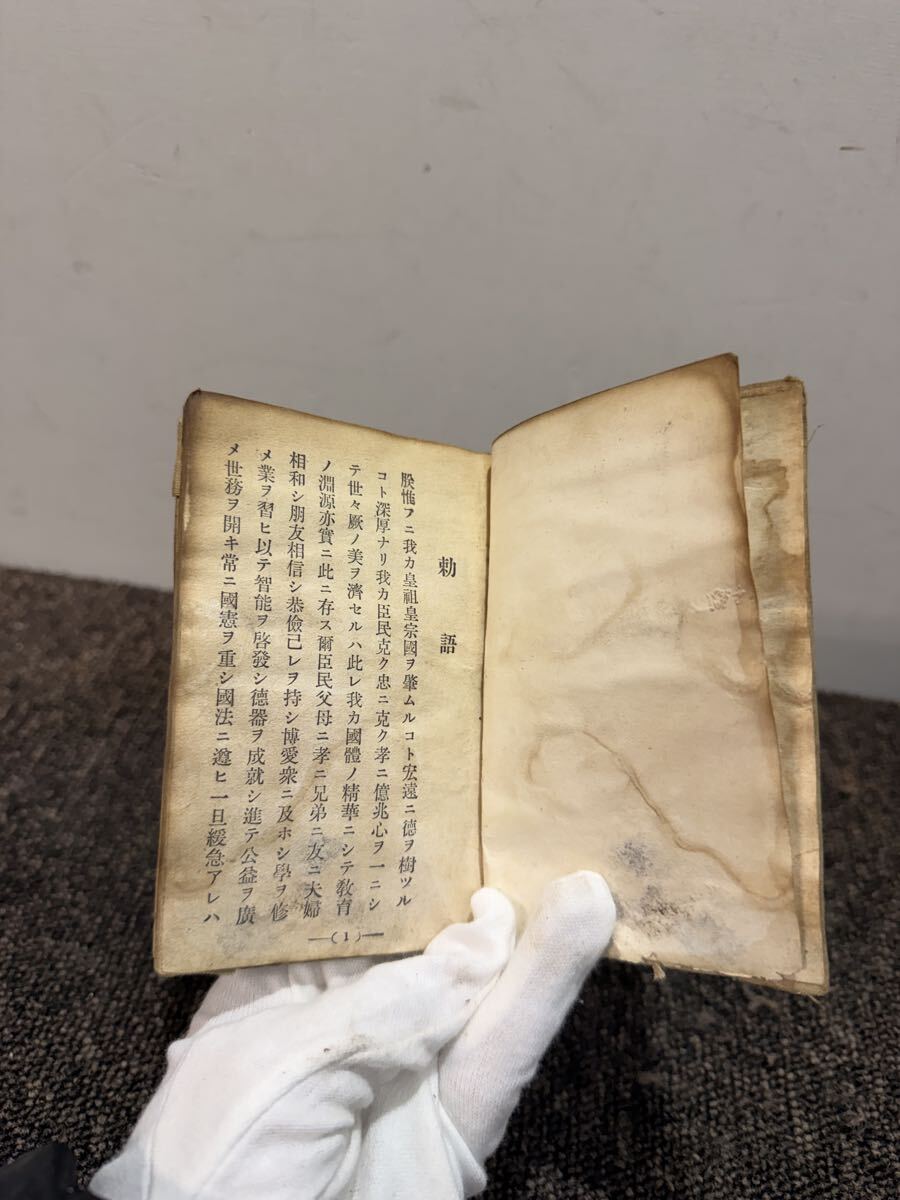 勅語
朕惟フニ我カ皇祖皇宗國ヲ肇ムルコト宏遠ニ德ヲ樹ツル
コト深厚ナリ我カ臣民克ク忠ニ克ク孝ニ億兆心ヲ一ニシ
テ世々厥ノ美ヲ濟セルハ此レ我カ國體ノ精華ニシテ敎育
ノ淵源亦實ニ此ニ存ス爾臣民父母ニ孝ニ兄弟ニ友ニ夫婦
相和シ朋友相信シ恭儉己レヲ持シ博愛衆ニ及ホシ學ヲ修
メ業ヲ習ヒ以テ智能ヲ啓發シ德器ヲ成就シ進テ公益ヲ廣
メ世務ヲ開キ常ニ國憲ヲ重シ國法ニ遵ヒ一旦緩急アレハ
—(1)—